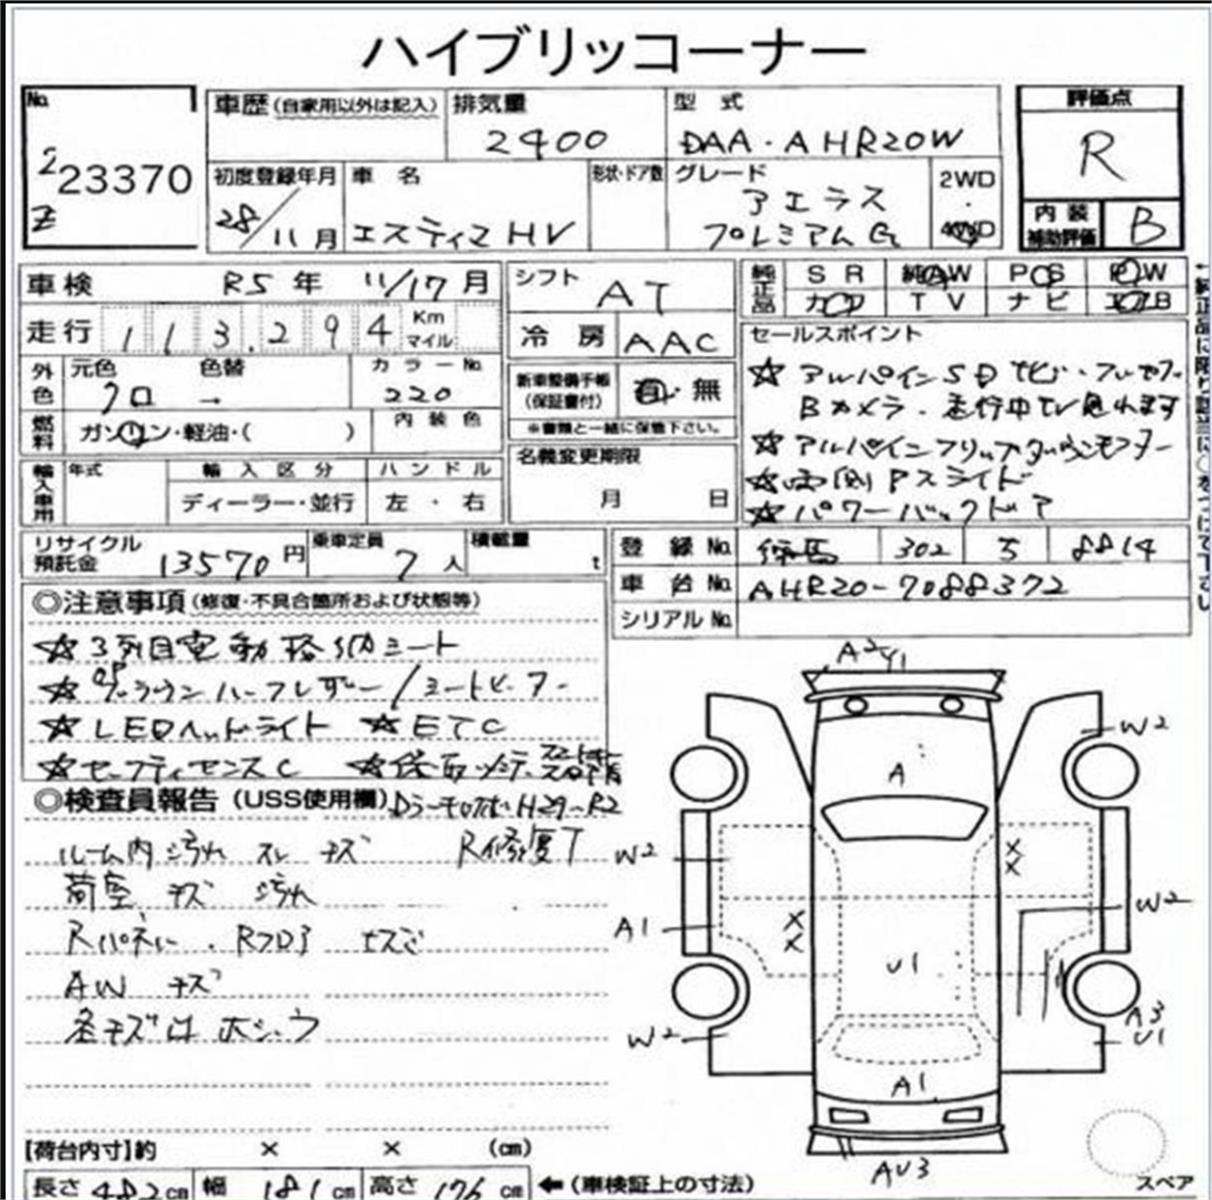 ハイブリッコーナー
No.
223370
Z
車歴 (自家用以外は記入)
排気量
2400
型 式
DAA・AHR20W
評価点
R
初度登録年月
28/11月
車 名
エスティマHV
形状・ドア数
グレード
アエラス
プレミアムG
2WD
・
4WD
内 装
補助評価
B
車検 R5年 11/17月
シフト AT
純正品
SR 純AW PS PW
カワ TV ナビ エアB
走行 113.294 Km マイル
冷 房 AAC
セールスポイント
外色 元色 色替 カラーNo.
クロ → 220
新車整備手帳
(保証書付)
有・無
※書類と一緒に保管下さい。
☆ アルパインSDナビ・フルセグ
Bカメラ・走行中TV見れます
☆ アルパインフリップダウンモニター
☆ 両側Pスライド
☆ パワーバックドア
燃料 ガソリン・軽油・( )
内 装 色
名義変更期限
月 日
輸入車用 年式 輸 入 区 分 ハ ン ド ル
ディーラー・並行 左 ・ 右
リサイクル
預託金 13570円
乗車定員 7人
積載量 t
登 録 No. 練馬 302 8814
車 台 No. AHR20-7088372
シリアル No.
◎注意事項 (修復・不具合箇所および状態等)
☆ 3列目電動格納シート
☆ ハーフレザー/シートヒーター
☆ LEDヘッドライト ☆ ETC
☆ セーフティセンスC
◎検査員報告 (USS使用欄)
H29~R2
ルーム内汚れ スレ キズ R修復T
荷室 キズ 汚れ
Rパネル. Rフロア
AW キズ
各キズ ホシュウ
A2 U1
W2
A
W2
XX
W2
A1
XX
U1
A3
U1
W2
A1
AU3
スペア
【荷台内寸】約 × × (cm)
長さ 482cm 幅 181cm 高さ 176cm ←(車検証上の寸法)